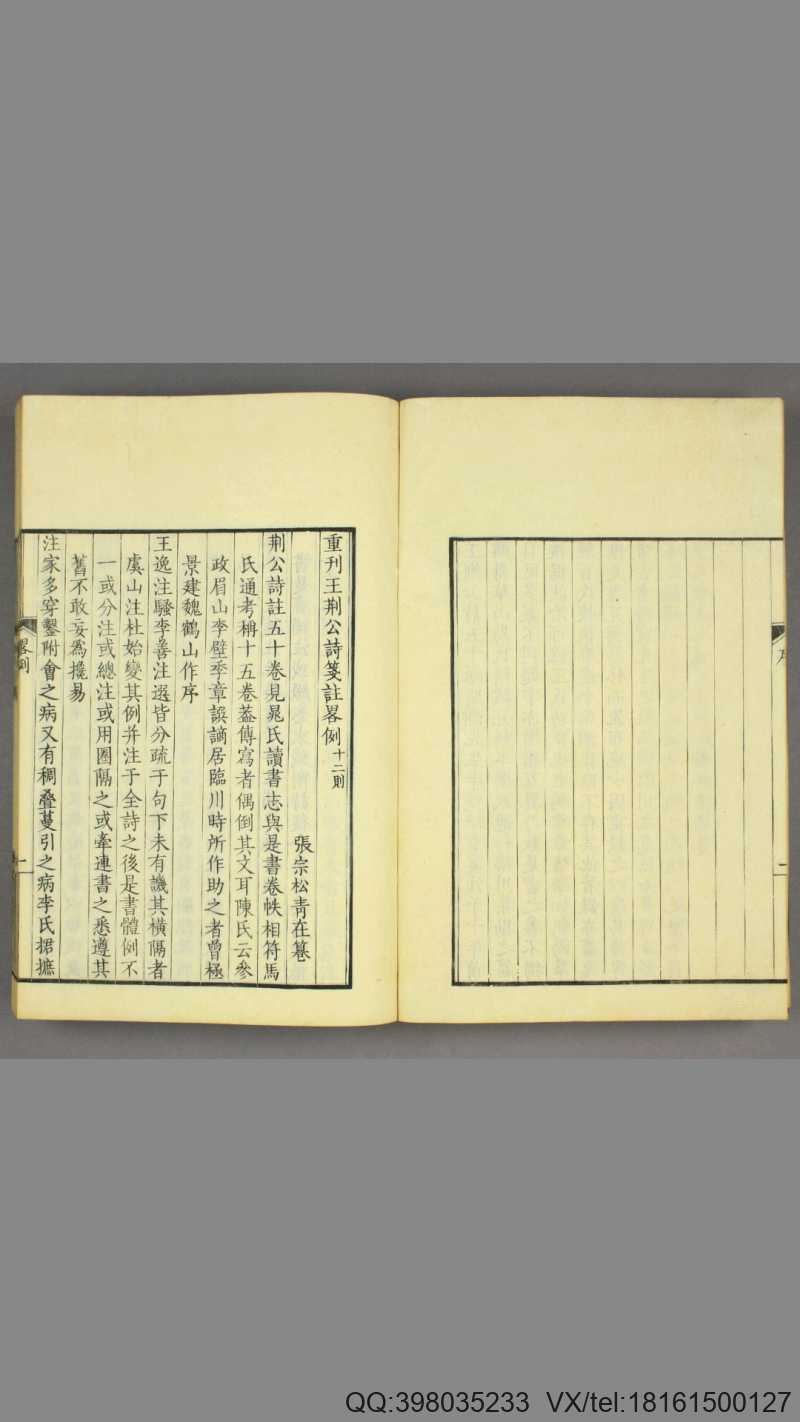 序
二
重刊王荆公詩箋註畧例十二則
張宗松青在纂
荆公詩註五十卷見晁氏讀書志與是書卷帙相符馬
氏通考稱十五卷葢傳寫者偶倒其文耳陳氏云參
政眉山李壁季章譔謫居臨川時所作助之者曾極
景建魏鶴山作序
王逸注騷李善注選皆分疏于句下未有譏其橫隔者
虞山注杜始變其例并注于全詩之後是書體例不
一或分注或總注或用圈隔之或牽連書之悉遵其
舊不敢妄爲攙易
注家多穿鑿附會之病又有稠疊蔓引之病李氏捃摭
畧例
一
QQ:398035233 VX/tel:18161500127